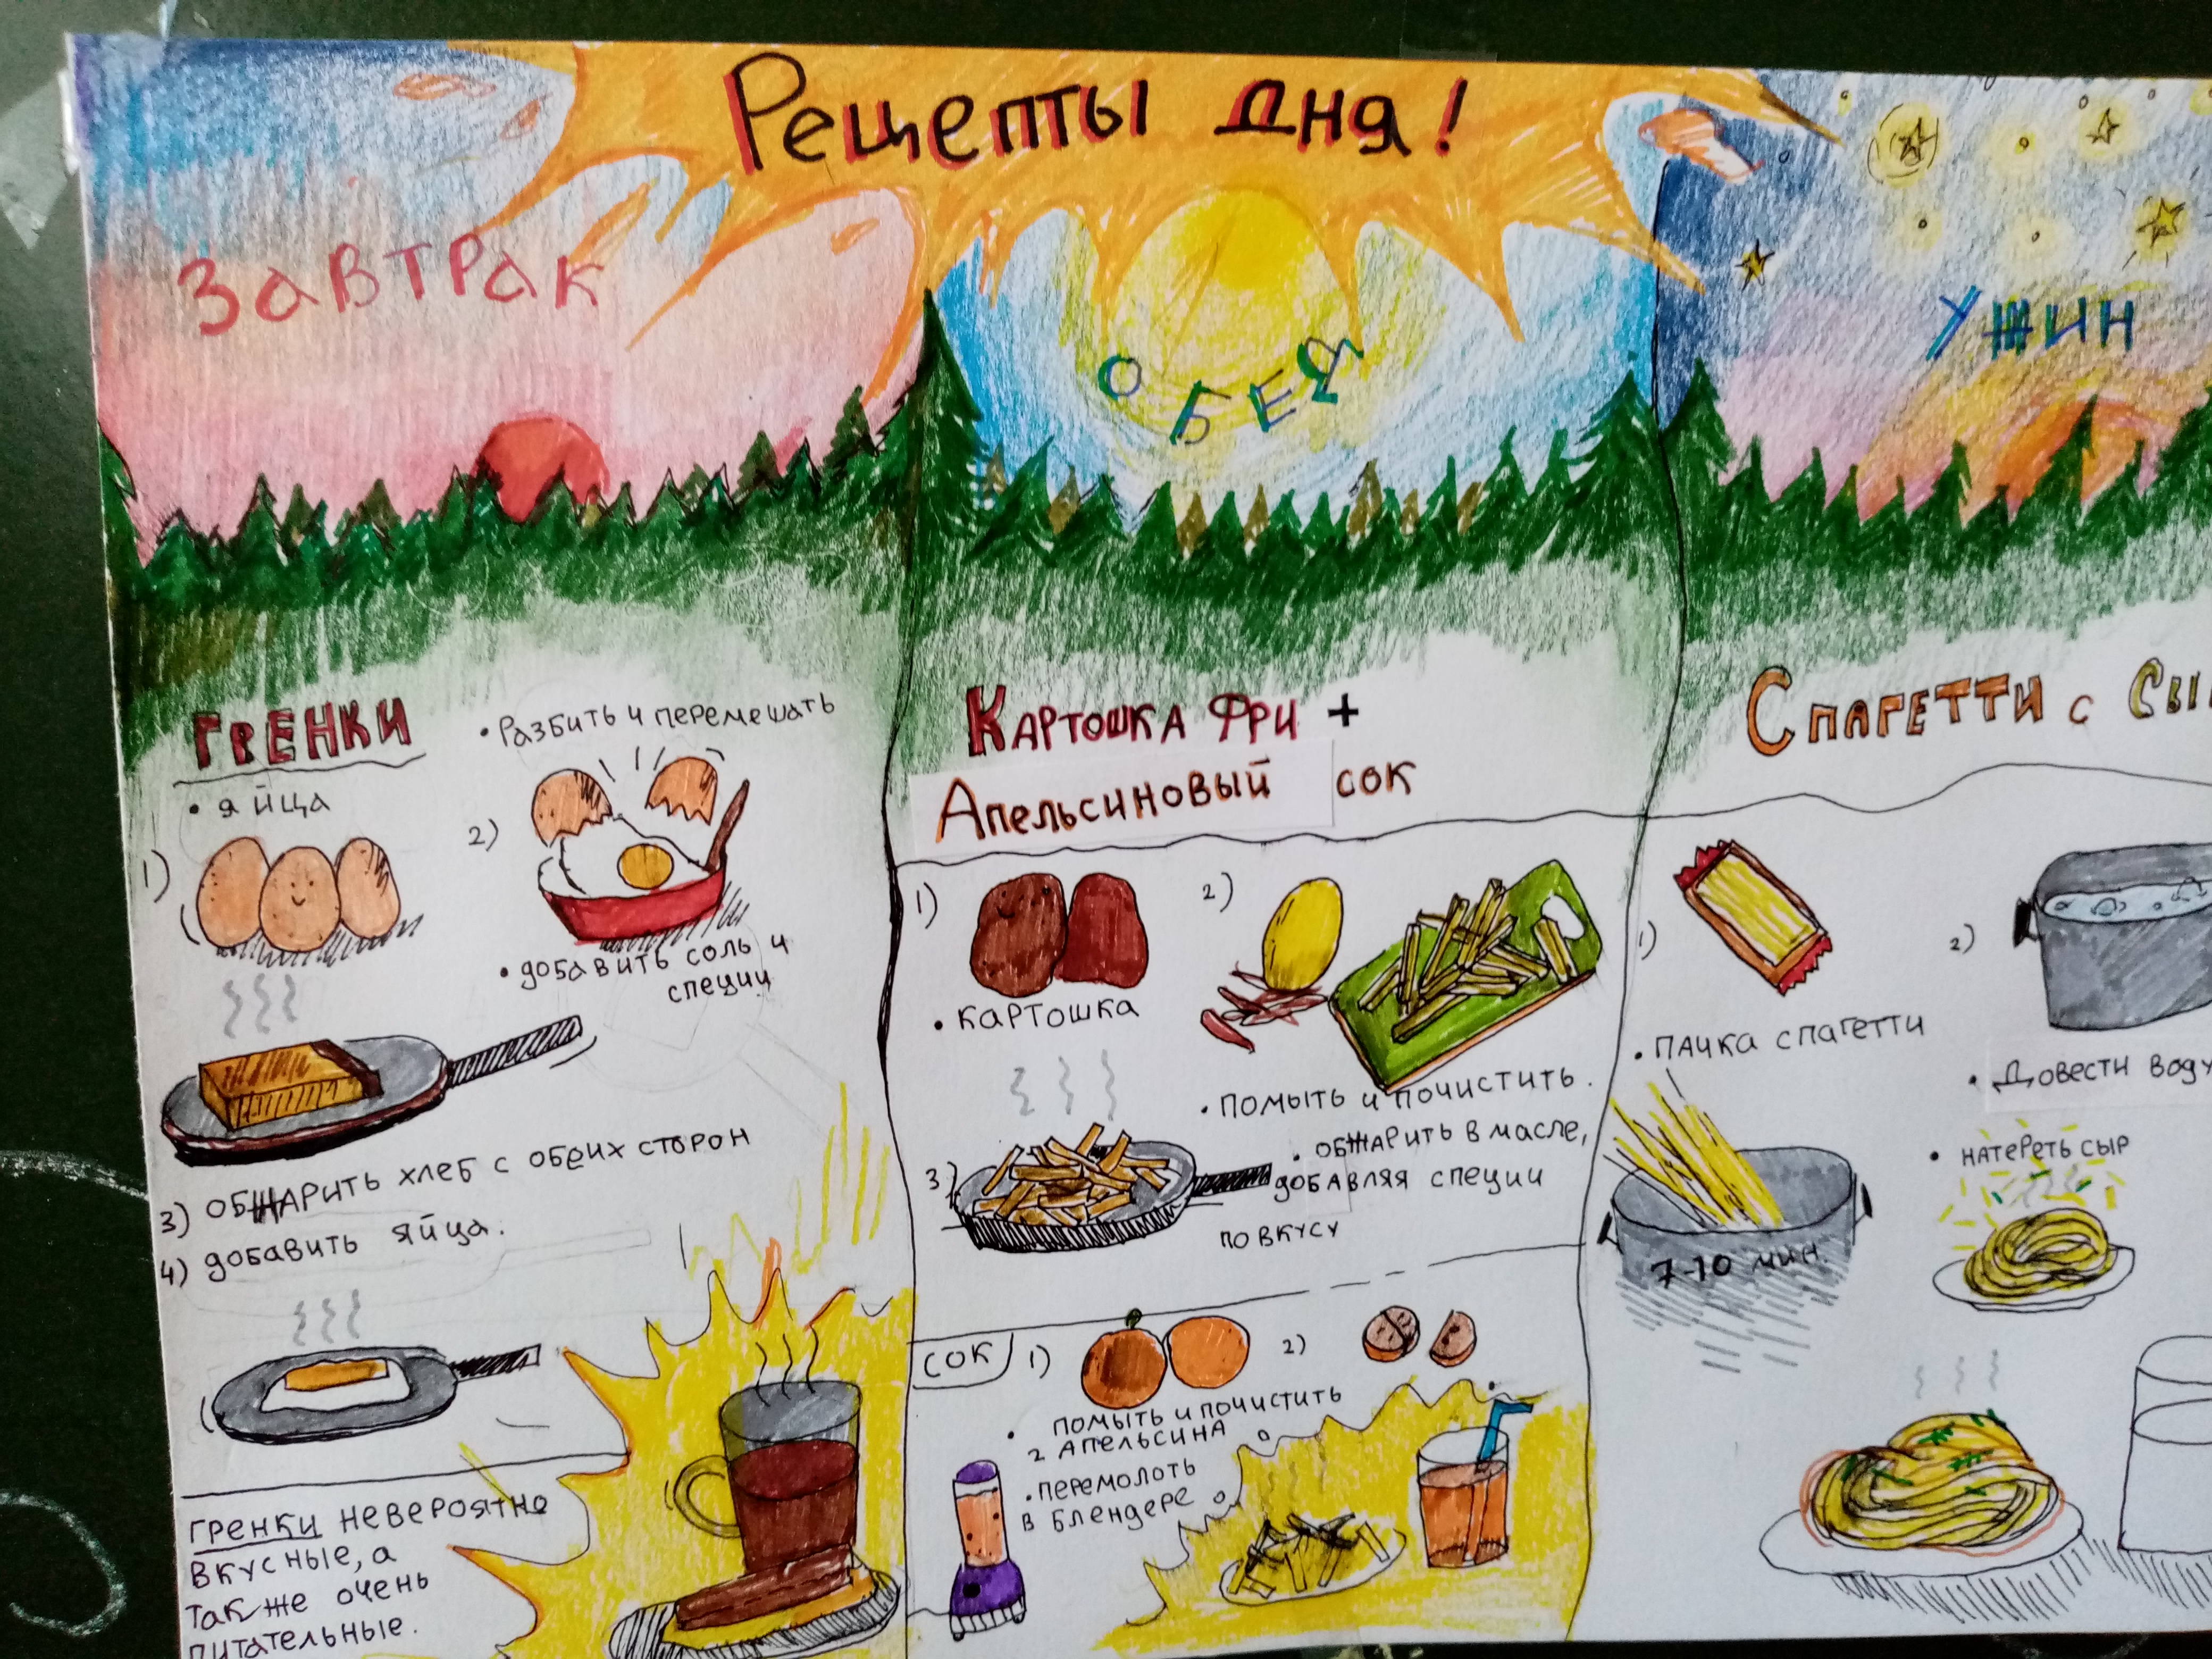 Рецепты дня!
Завтрак
Обед
Ужин
Гренки
• яйца
1)
• Разбить и перемешать
2)
• добавить соль и
специи
3) обжарить хлеб с обеих сторон
4) добавить яйца.
Гренки невероятно
вкусные, а
также очень
питательные.
Картошка Фри +
Апельсиновый сок
1)
• картошка
2)
• помыть и почистить.
3)
• обжарить в масле,
добавляя специи
по вкусу
сок
1)
2)
• помыть и почистить
2 апельсина
• перемолоть
в блендере
Спагетти с Сы
1)
• пачка спагетти
2)
• Довести воду
7-10 мин.
• натереть сыр